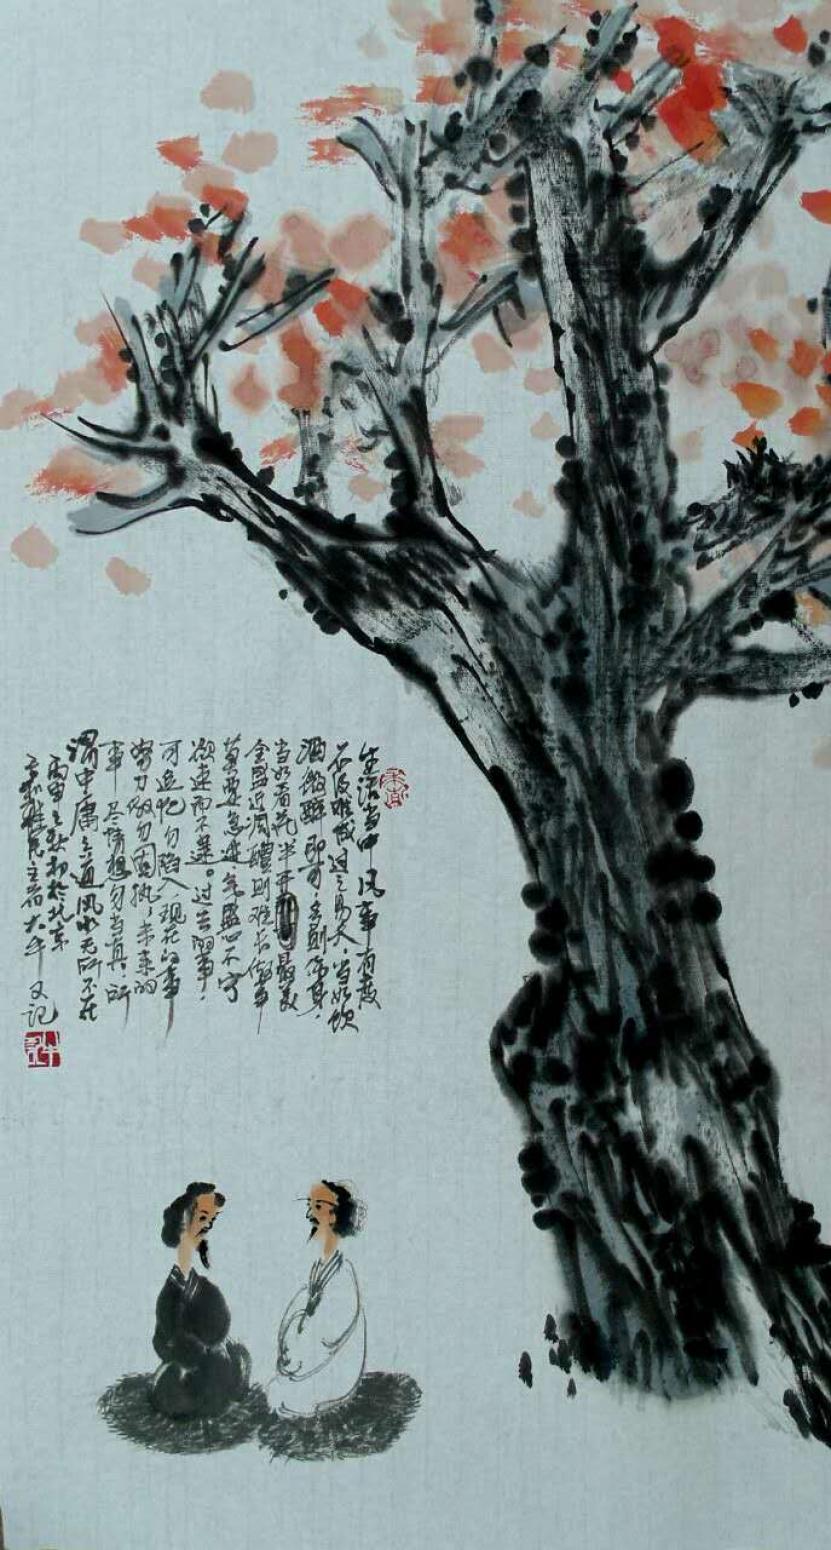 生活当中凡事有度
不及唯憾过之易夭，当如饮
酒微醉即可，多则伤身，
当如看花半开最美
全盛近凋 则难长做事
莫要急进气盛心不宁
欲速而不达。过去的事，
可追忆勿陷入，现在的事
努力做勿固执，未来的
事尽情想勿当真，所
谓中庸之道风水无所不在
丙申之秋初于北京
大牛又记